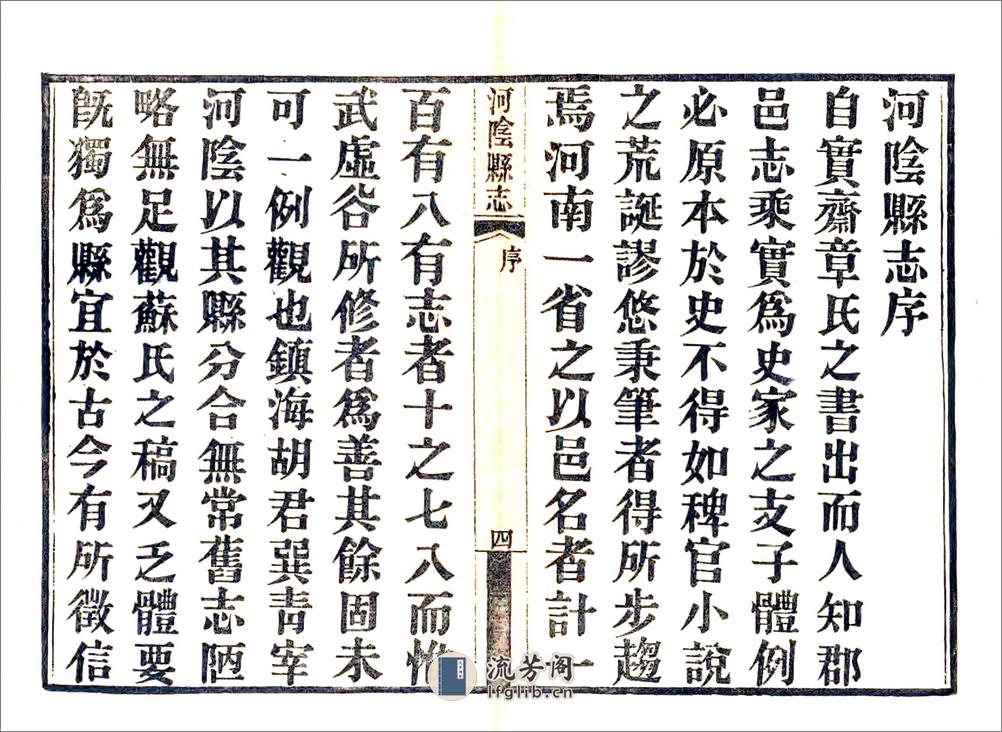 河陰縣志序
自實齋章氏之書出而人知郡
邑志乘實爲史家之支子體例
必原本於史不得如稗官小說
之荒誕謬悠秉筆者得所步趨
焉河南一省之以邑名者計一
河陰縣志
序
四
百有八有志者十之七八而惟
武虛谷所修者爲善其餘固未
可一例觀也鎮海胡君巽青宰
河陰以其縣分合無常舊志陋
略無足觀蘇氏之稿又乏體要
旣獨爲縣宜於古今有所徵信
流芳阁
lfglib.cn